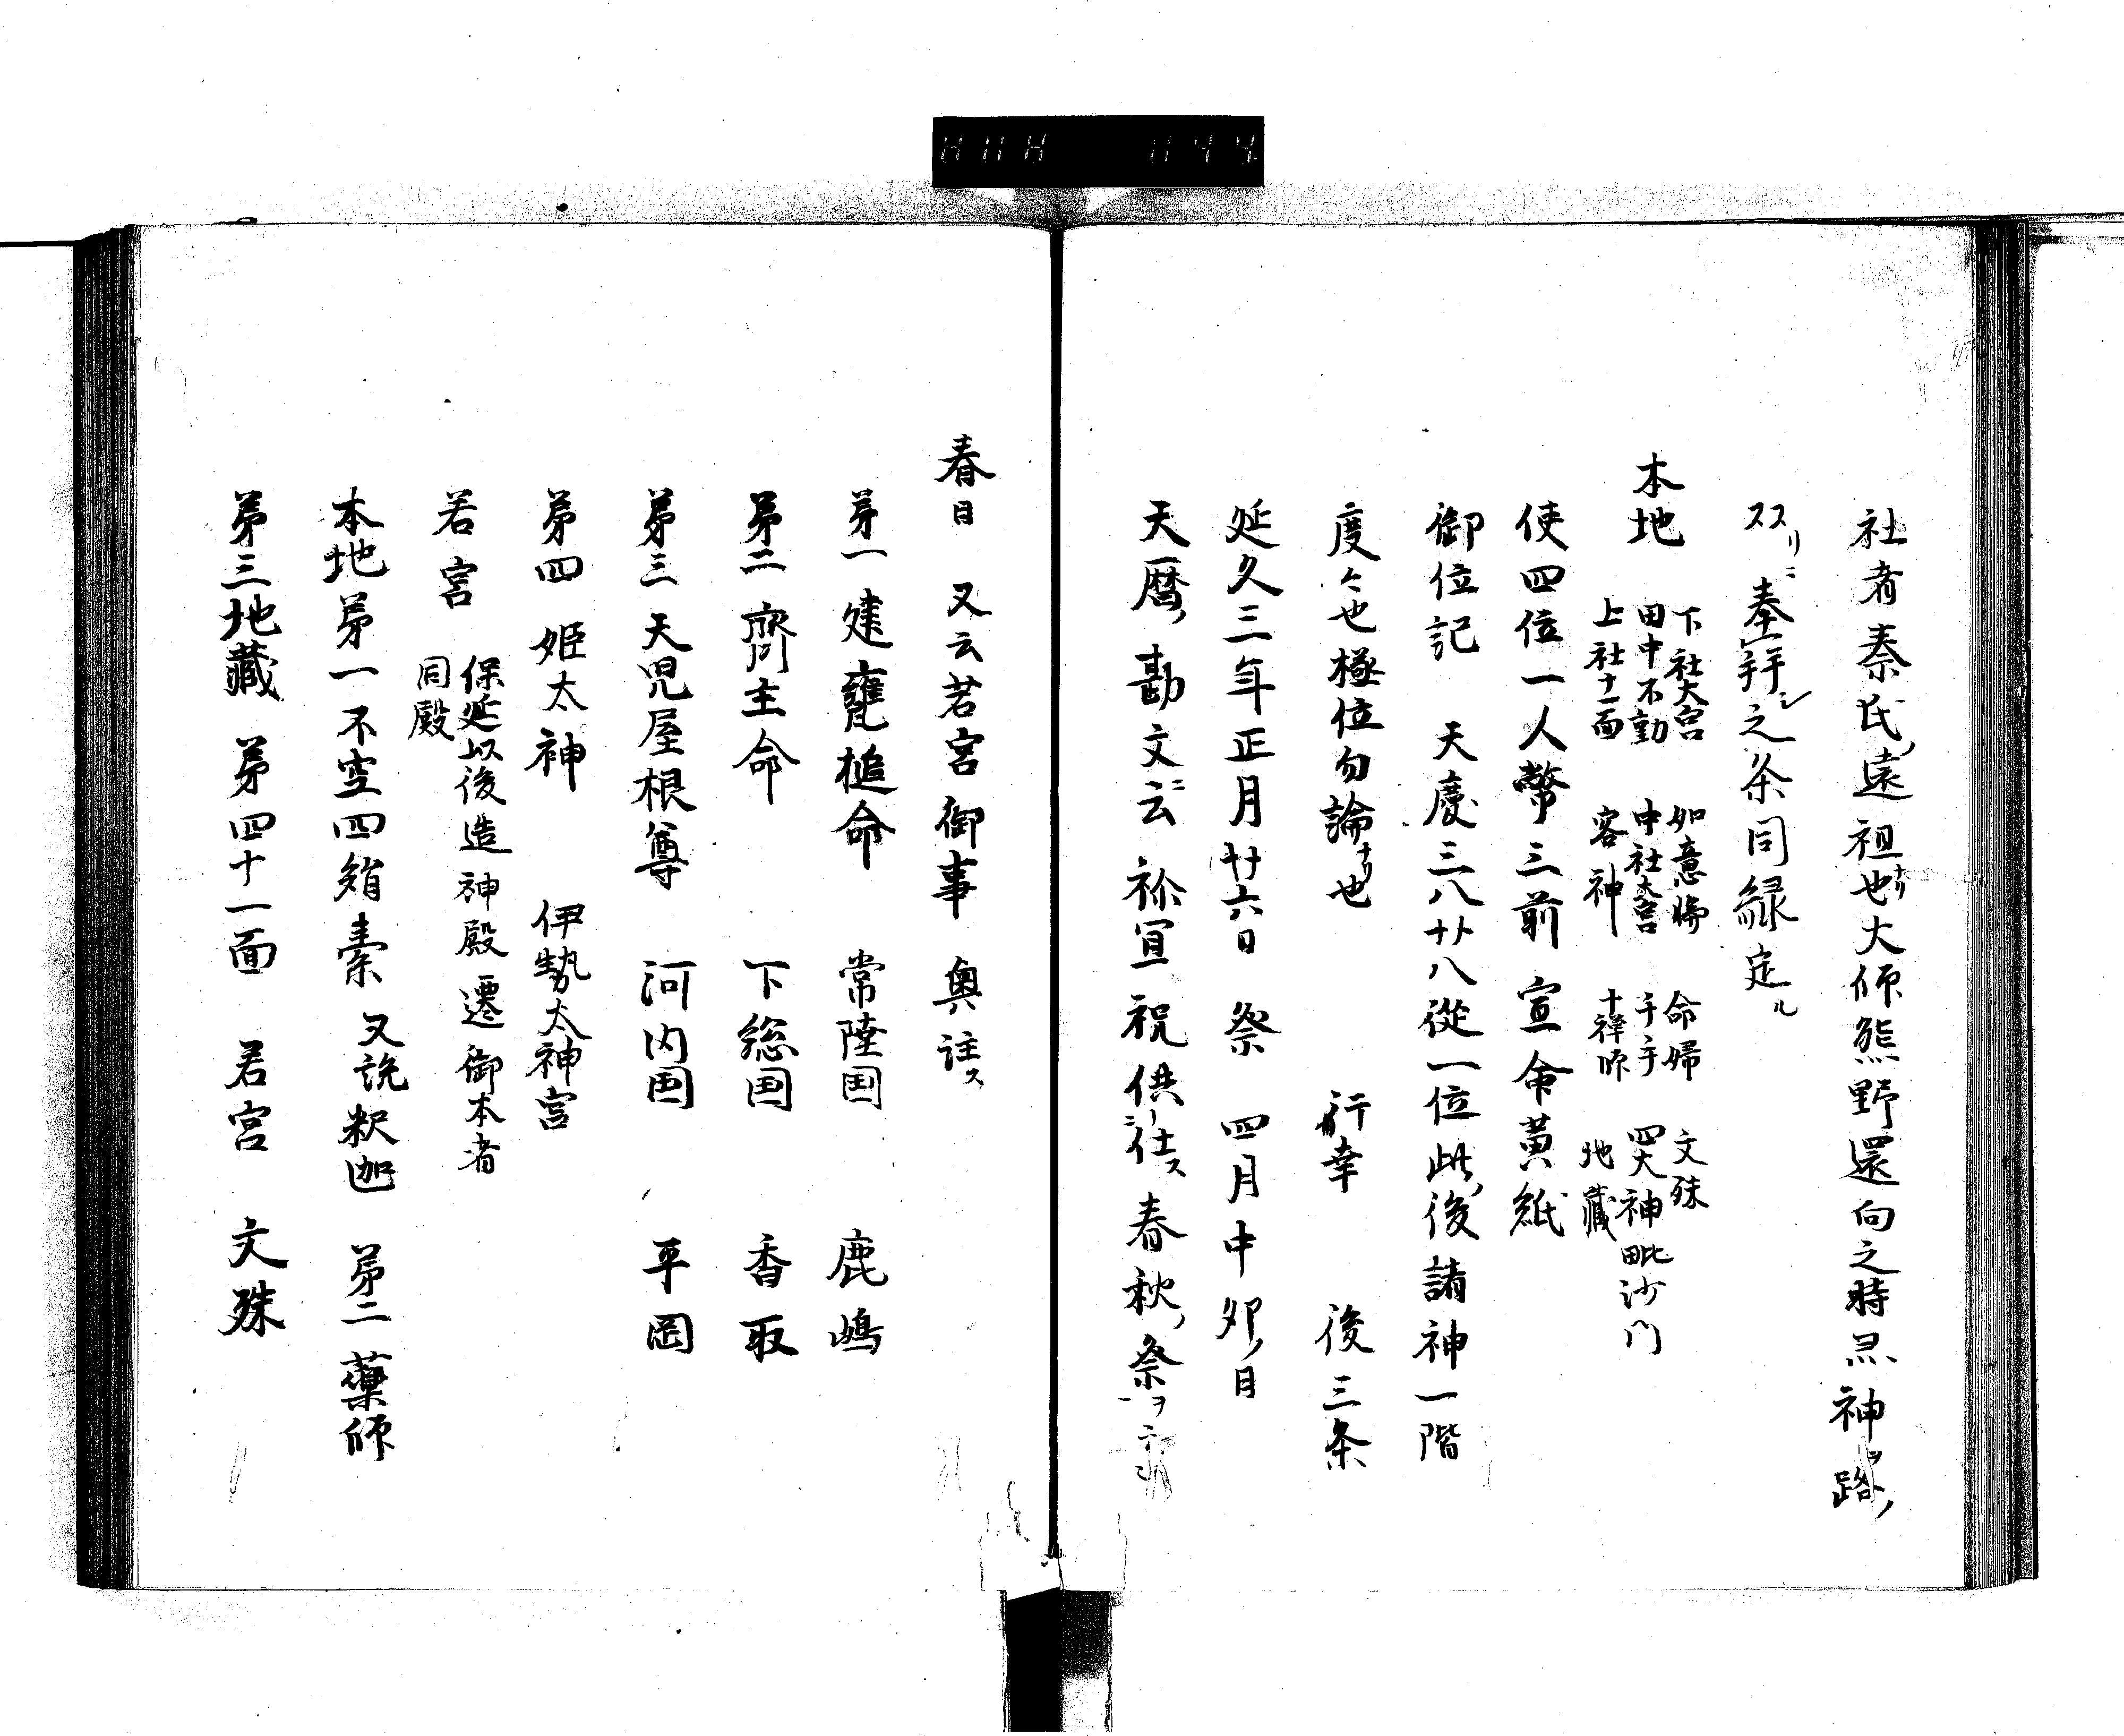 社者秦氏遠祖也大師熊野還向之時立神路
スヽリニ奉拝之条同縁定ル
本地 下社大宮 如意輪 命婦 文殊
田中不動 中社大宮 千手 四大神毗沙門
上社十一面 客神 十禅師 地蔵
使四位一人幣三前宣命黄紙
御位記 天慶三八廿八従一位此後諸神一階
度々也極位勿論也 行幸 後三条
延久三年正月廿六日 祭 四月中卯日
天暦勘文云祢宜祝供仕ス春秋祭ヲ
春日 又云若宮御事奥註ス
第一 建甕槌命 常陸国 鹿嶋
第二 齋主命 下総国 香取
第三 天児屋根尊 河内国 平岡
第四 姫太神 伊勢太神宮
若宮 保延以後造神殿遷御本者
同殿
本地第一不空羂索 又説釈迦 第二薬師
第三地蔵 第四十一面 若宮 文殊